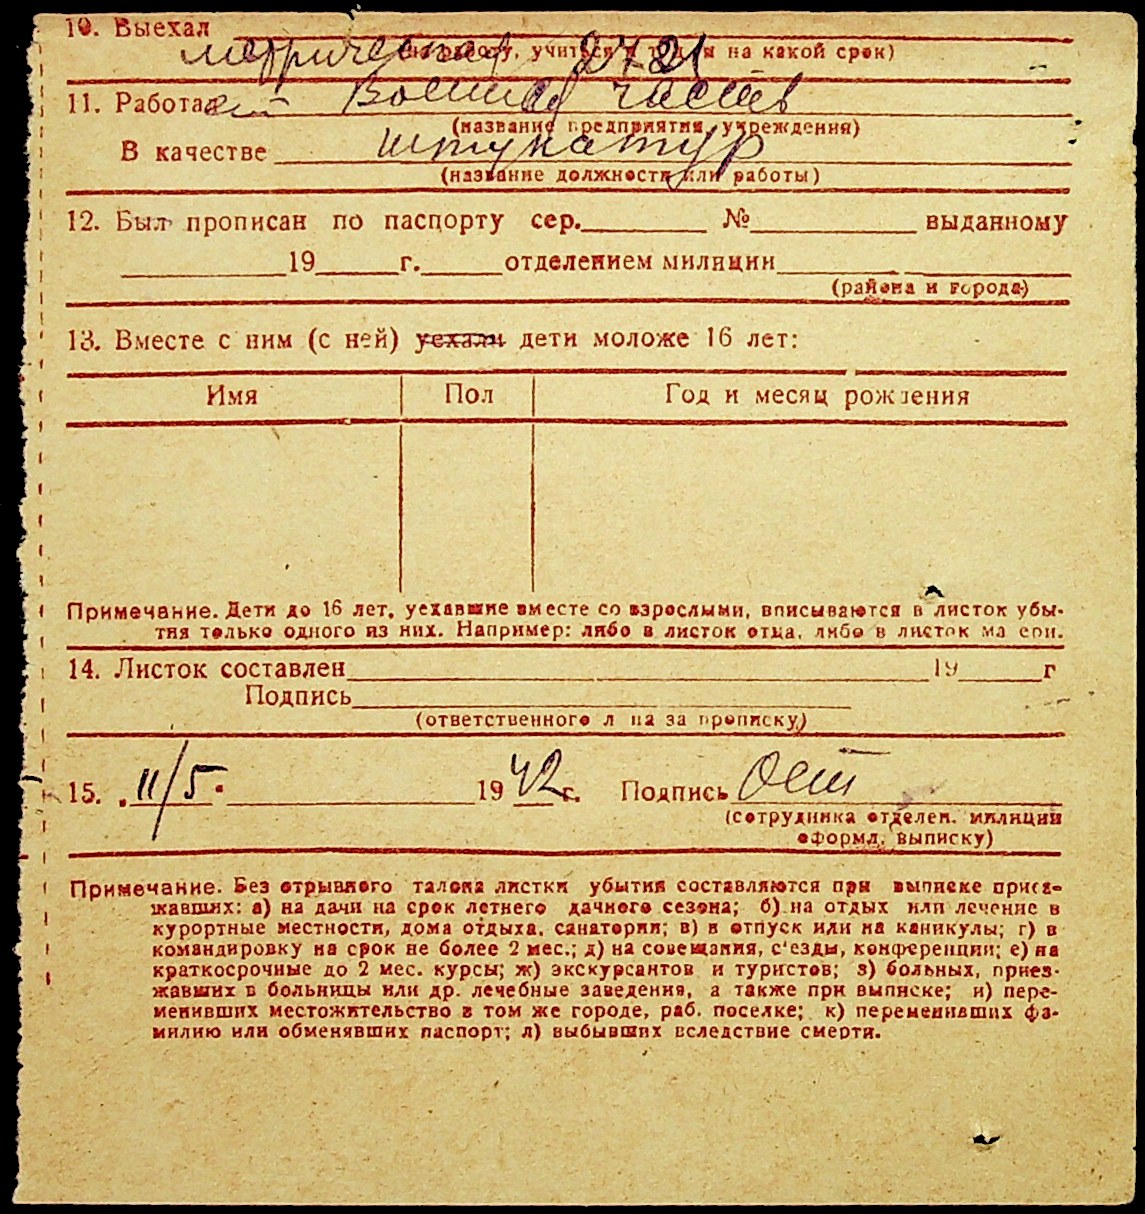 10. Выехал
(на работу, учиться и т. д. и на какой срок)
метрическая 2721
11. Работает Военная часть
(название предприятия, учреждения)
В качестве штукатур
(название должности или работы)
12. Был прописан по паспорту сер. № выданному
19 г. отделением милиции
(района и города)
13. Вместе с ним (с ней) уехали дети моложе 16 лет:
Имя Пол Год и месяц рождения
Примечание. Дети до 16 лет, уехавшие вместе со взрослыми, вписываются в листок убы-
тия только одного из них. Например: либо в листок отца, либо в листок ма ери.
14. Листок составлен 19 г
Подпись
(ответственного л ца за прописку)
15. 11/5 1942 г. Подпись
(сотрудника отделен. милиции
оформл. выписку)
Примечание. Без отрывного талона листки убытия составляются при выписке приез-
жавших: а) на дачи на срок летнего дачного сезона; б) на отдых или лечение в
курортные местности, дома отдыха, санатории; в) в отпуск или на каникулы; г) в
командировку на срок не более 2 мес.; д) на совещания, с'езды, конференции; е) на
краткосрочные до 2 мес. курсы; ж) экскурсантов и туристов; з) больных, приез-
жавших в больницы или др. лечебные заведения, а также при выписке; и) пере-
менивших местожительство в том же городе, раб. поселке; к) переменивших фа-
милию или обменявших паспорт; л) выбывших вследствие смерти.